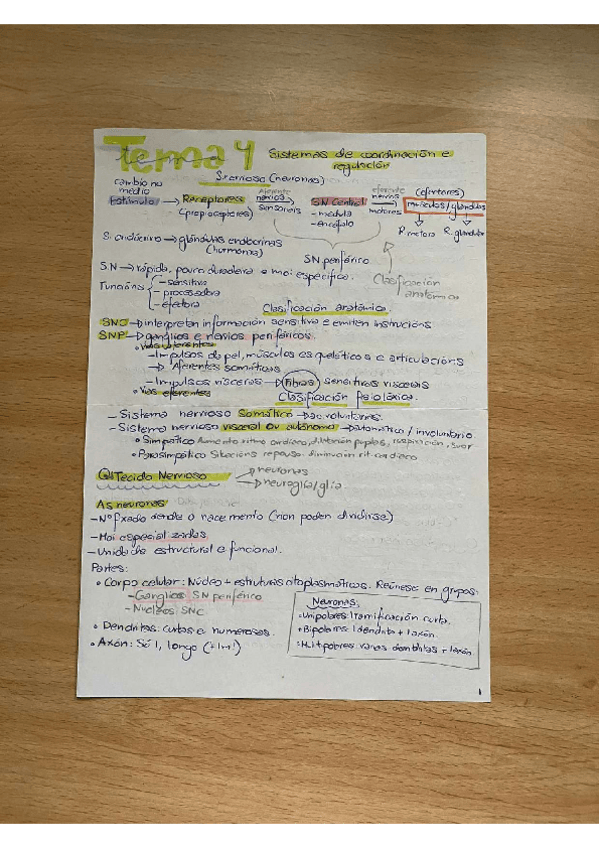 Tema 4 Sistemas de coordinación e
regulación
S. nervioso (neuronas)
cambio no
medio
Estímulo → Receptores Aferente nervios sensoriais SN Central eferente nervios motores (efectores) músculos/glándulas
(propioceptores) - médula
- encéfalo
R. motora R. glandular
S. endócrino → glándulas endocrinas
(hormonas)
SN periférico
SN → rápida, pouco duradeira e moi específica.
Clasificación
anatómica
Funcións - sensitiva
- procesadora
- efectora
Clasificación anatómica
SNC → interpretan información sensitiva e emiten instrucións
SNP → ganglios e nervios periféricos.
• Vías aferentes
- Impulsos da pel, músculos esqueléticos e articulacións
→ Aferentes somáticas
- Impulsos vísceras → Fibras sensitivas viscerais
• Vías eferentes
Clasificación fisiolóxica.
- Sistema nervioso Somático → ac. voluntarias.
- Sistema nervioso visceral ou autónomo → automática / involuntario
• Simpático Aumento ritmo cardíaco, dilatación pupilas, respiración, suor
• Parasimpático Situacións repouso: diminución rit. cardíaco
Tecido Nervioso → neuronas
→ neuroglía/glía
As neuronas
- Nº fixado dende o nacemento (non poden dividirse)
- Moi especializadas
- Unidade estructural e funcional.
Partes:
• Corpo celular: Núcleo + estruturas citoplasmáticas. Reúnese en grupos:
- Ganglios: SN periférico
- Núcleos: SNC
• Dendritas: curtas e numerosas.
• Axón: Só 1, longo (+1m!)
Neuronas:
• Unipolares: 1 ramificación curta.
• Bipolares: 1 dendrita + 1 axón.
• Multipolares: varias dendritas + 1 axón
1